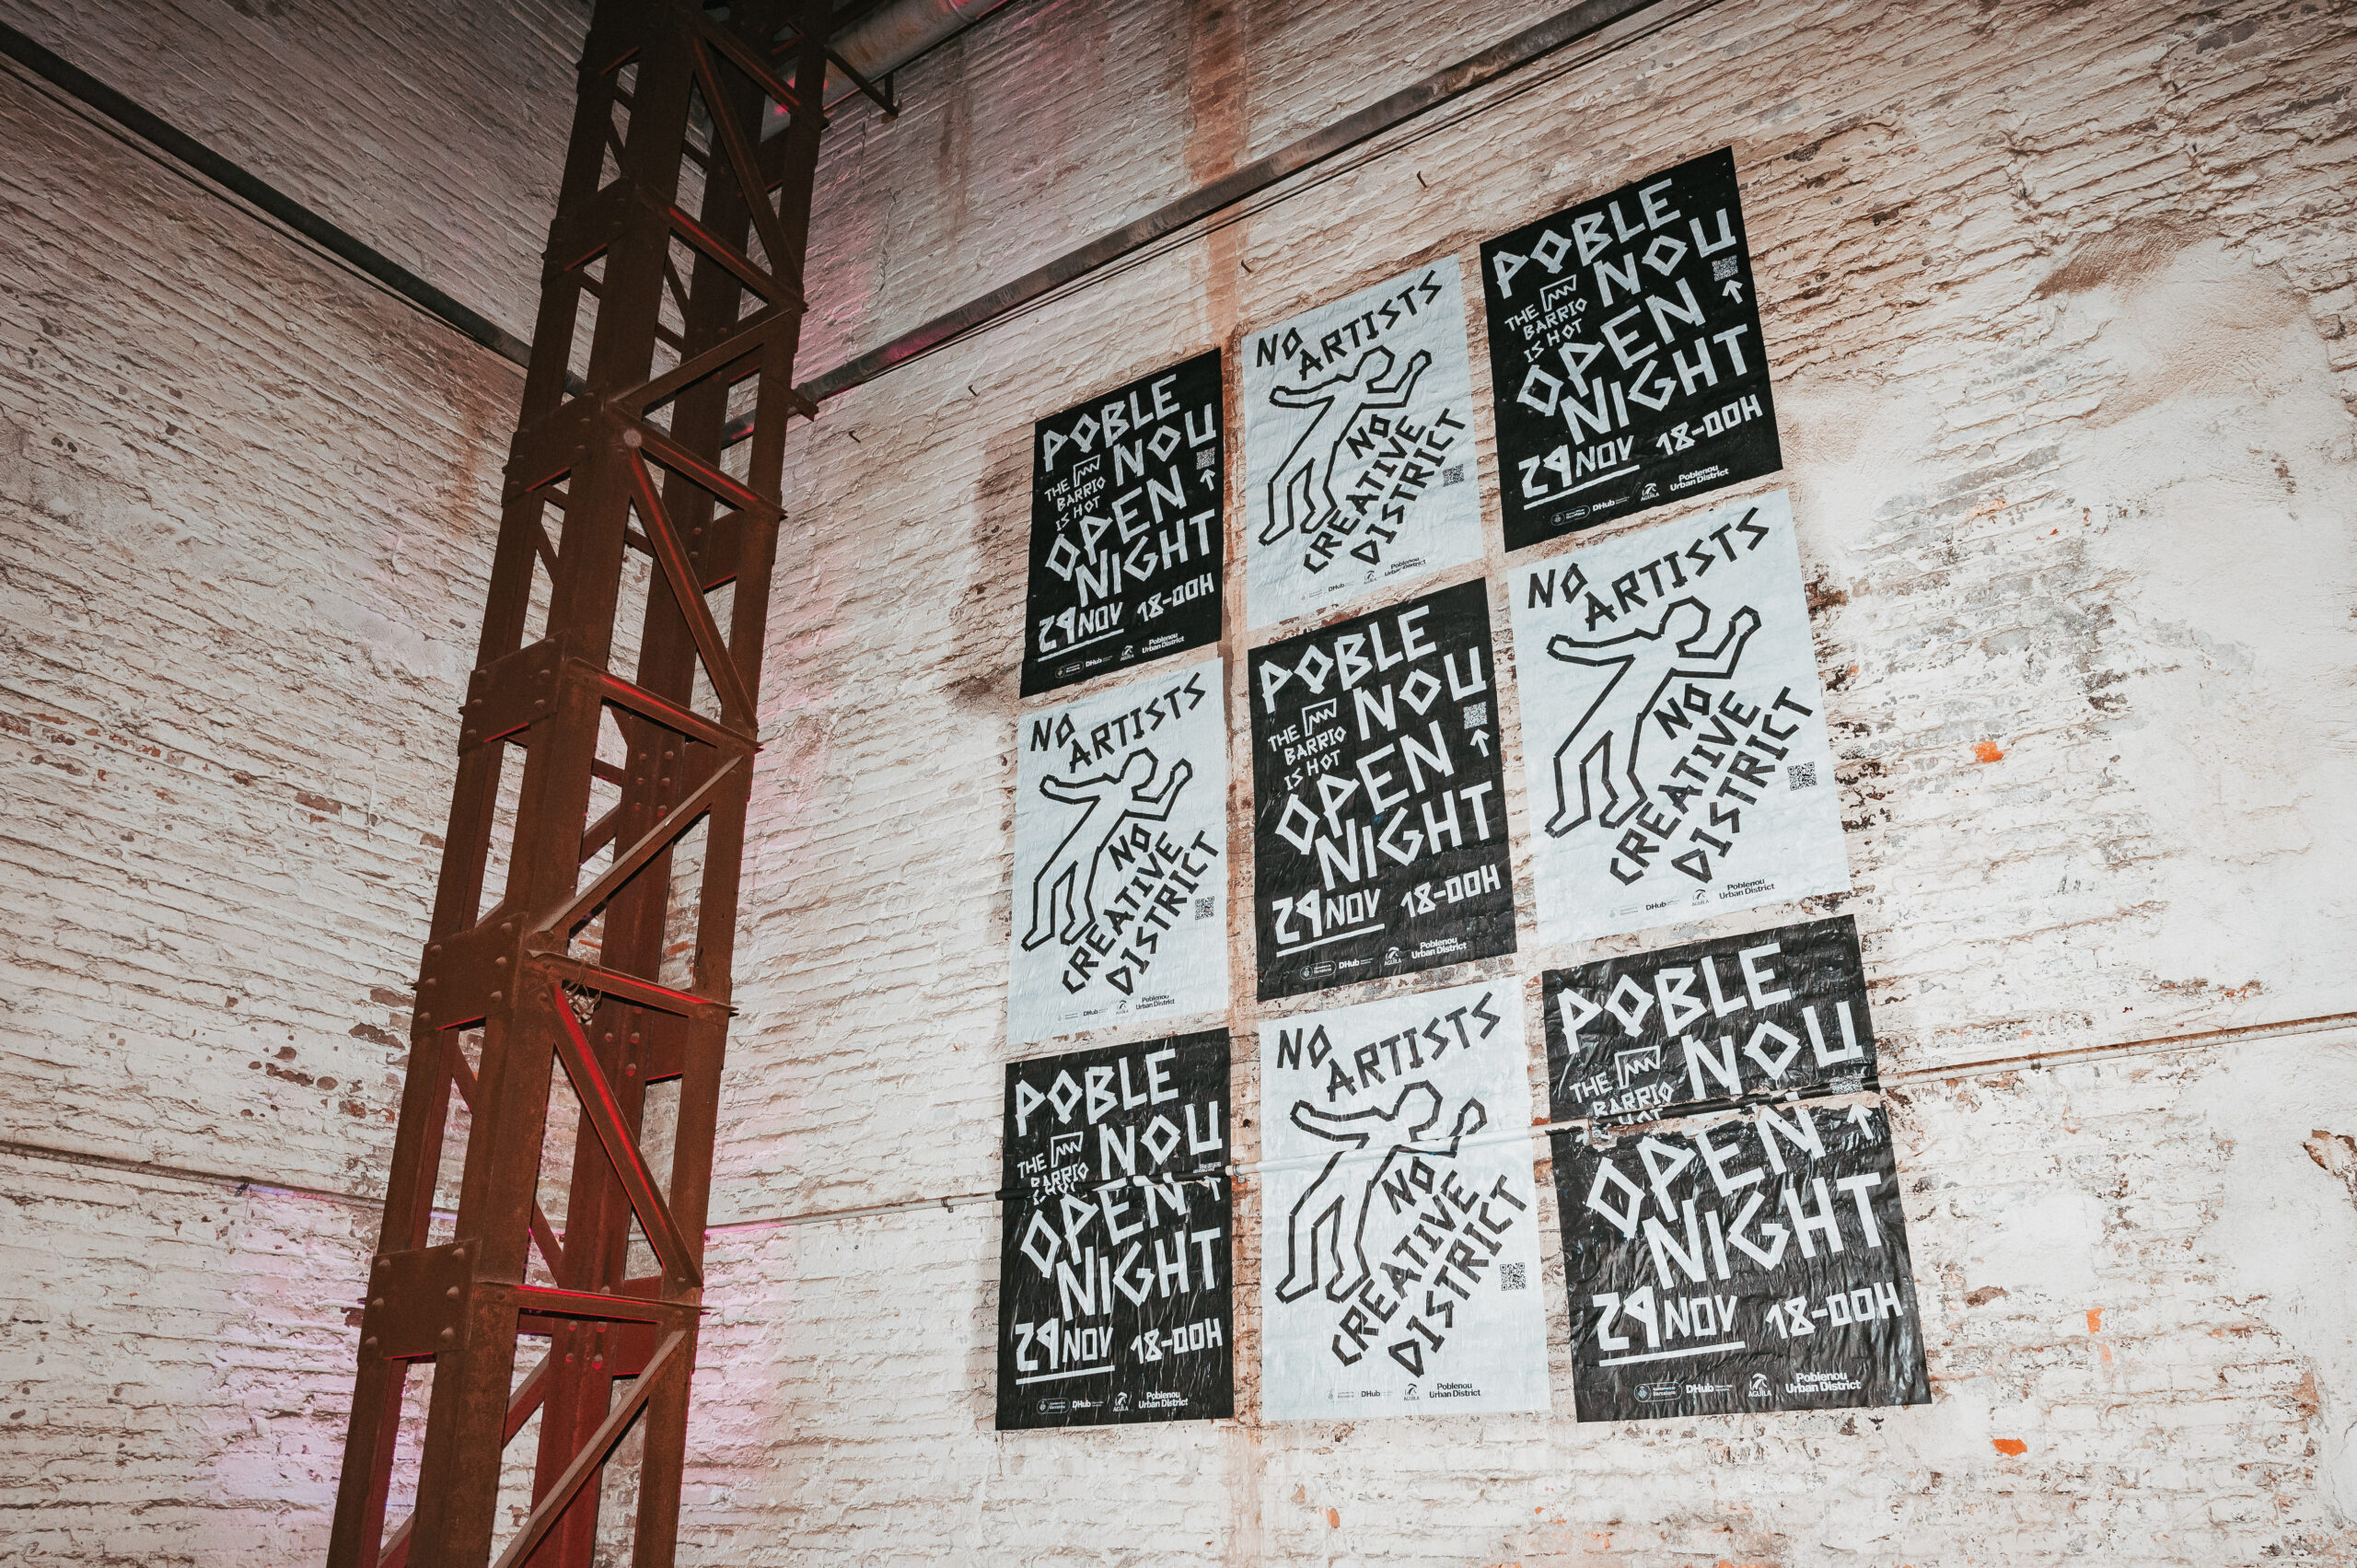 POBLE
NOU
THE
BARRIO
IS HOT
OPEN
NIGHT
29 NOV 18-00H
DHub
ÀGUILA
Poblenou
Urban District
NO
ARTISTS
NO
CREATIVE
DISTRICT
DHub
ÀGUILA
Poblenou
Urban District
POBLE
NOU
THE
BARRIO
IS HOT
OPEN
NIGHT
29 NOV 18-00H
DHub
ÀGUILA
Poblenou
Urban District
NO
ARTISTS
NO
CREATIVE
DISTRICT
DHub
ÀGUILA
Poblenou
Urban District
POBLE
NOU
THE
BARRIO
IS HOT
OPEN
NIGHT
29 NOV 18-00H
DHub
ÀGUILA
Poblenou
Urban District
NO
ARTISTS
NO
CREATIVE
DISTRICT
DHub
ÀGUILA
Poblenou
Urban District
POBLE
NOU
THE
BARRIO
IS HOT
OPEN
NIGHT
29 NOV 18-00H
DHub
ÀGUILA
Poblenou
Urban District
NO
ARTISTS
NO
CREATIVE
DISTRICT
DHub
ÀGUILA
Poblenou
Urban District
POBLE
NOU
THE
BARRIO
HOT
OPEN
NIGHT
29 NOV 18-00H
DHub
ÀGUILA
Poblenou
Urban District